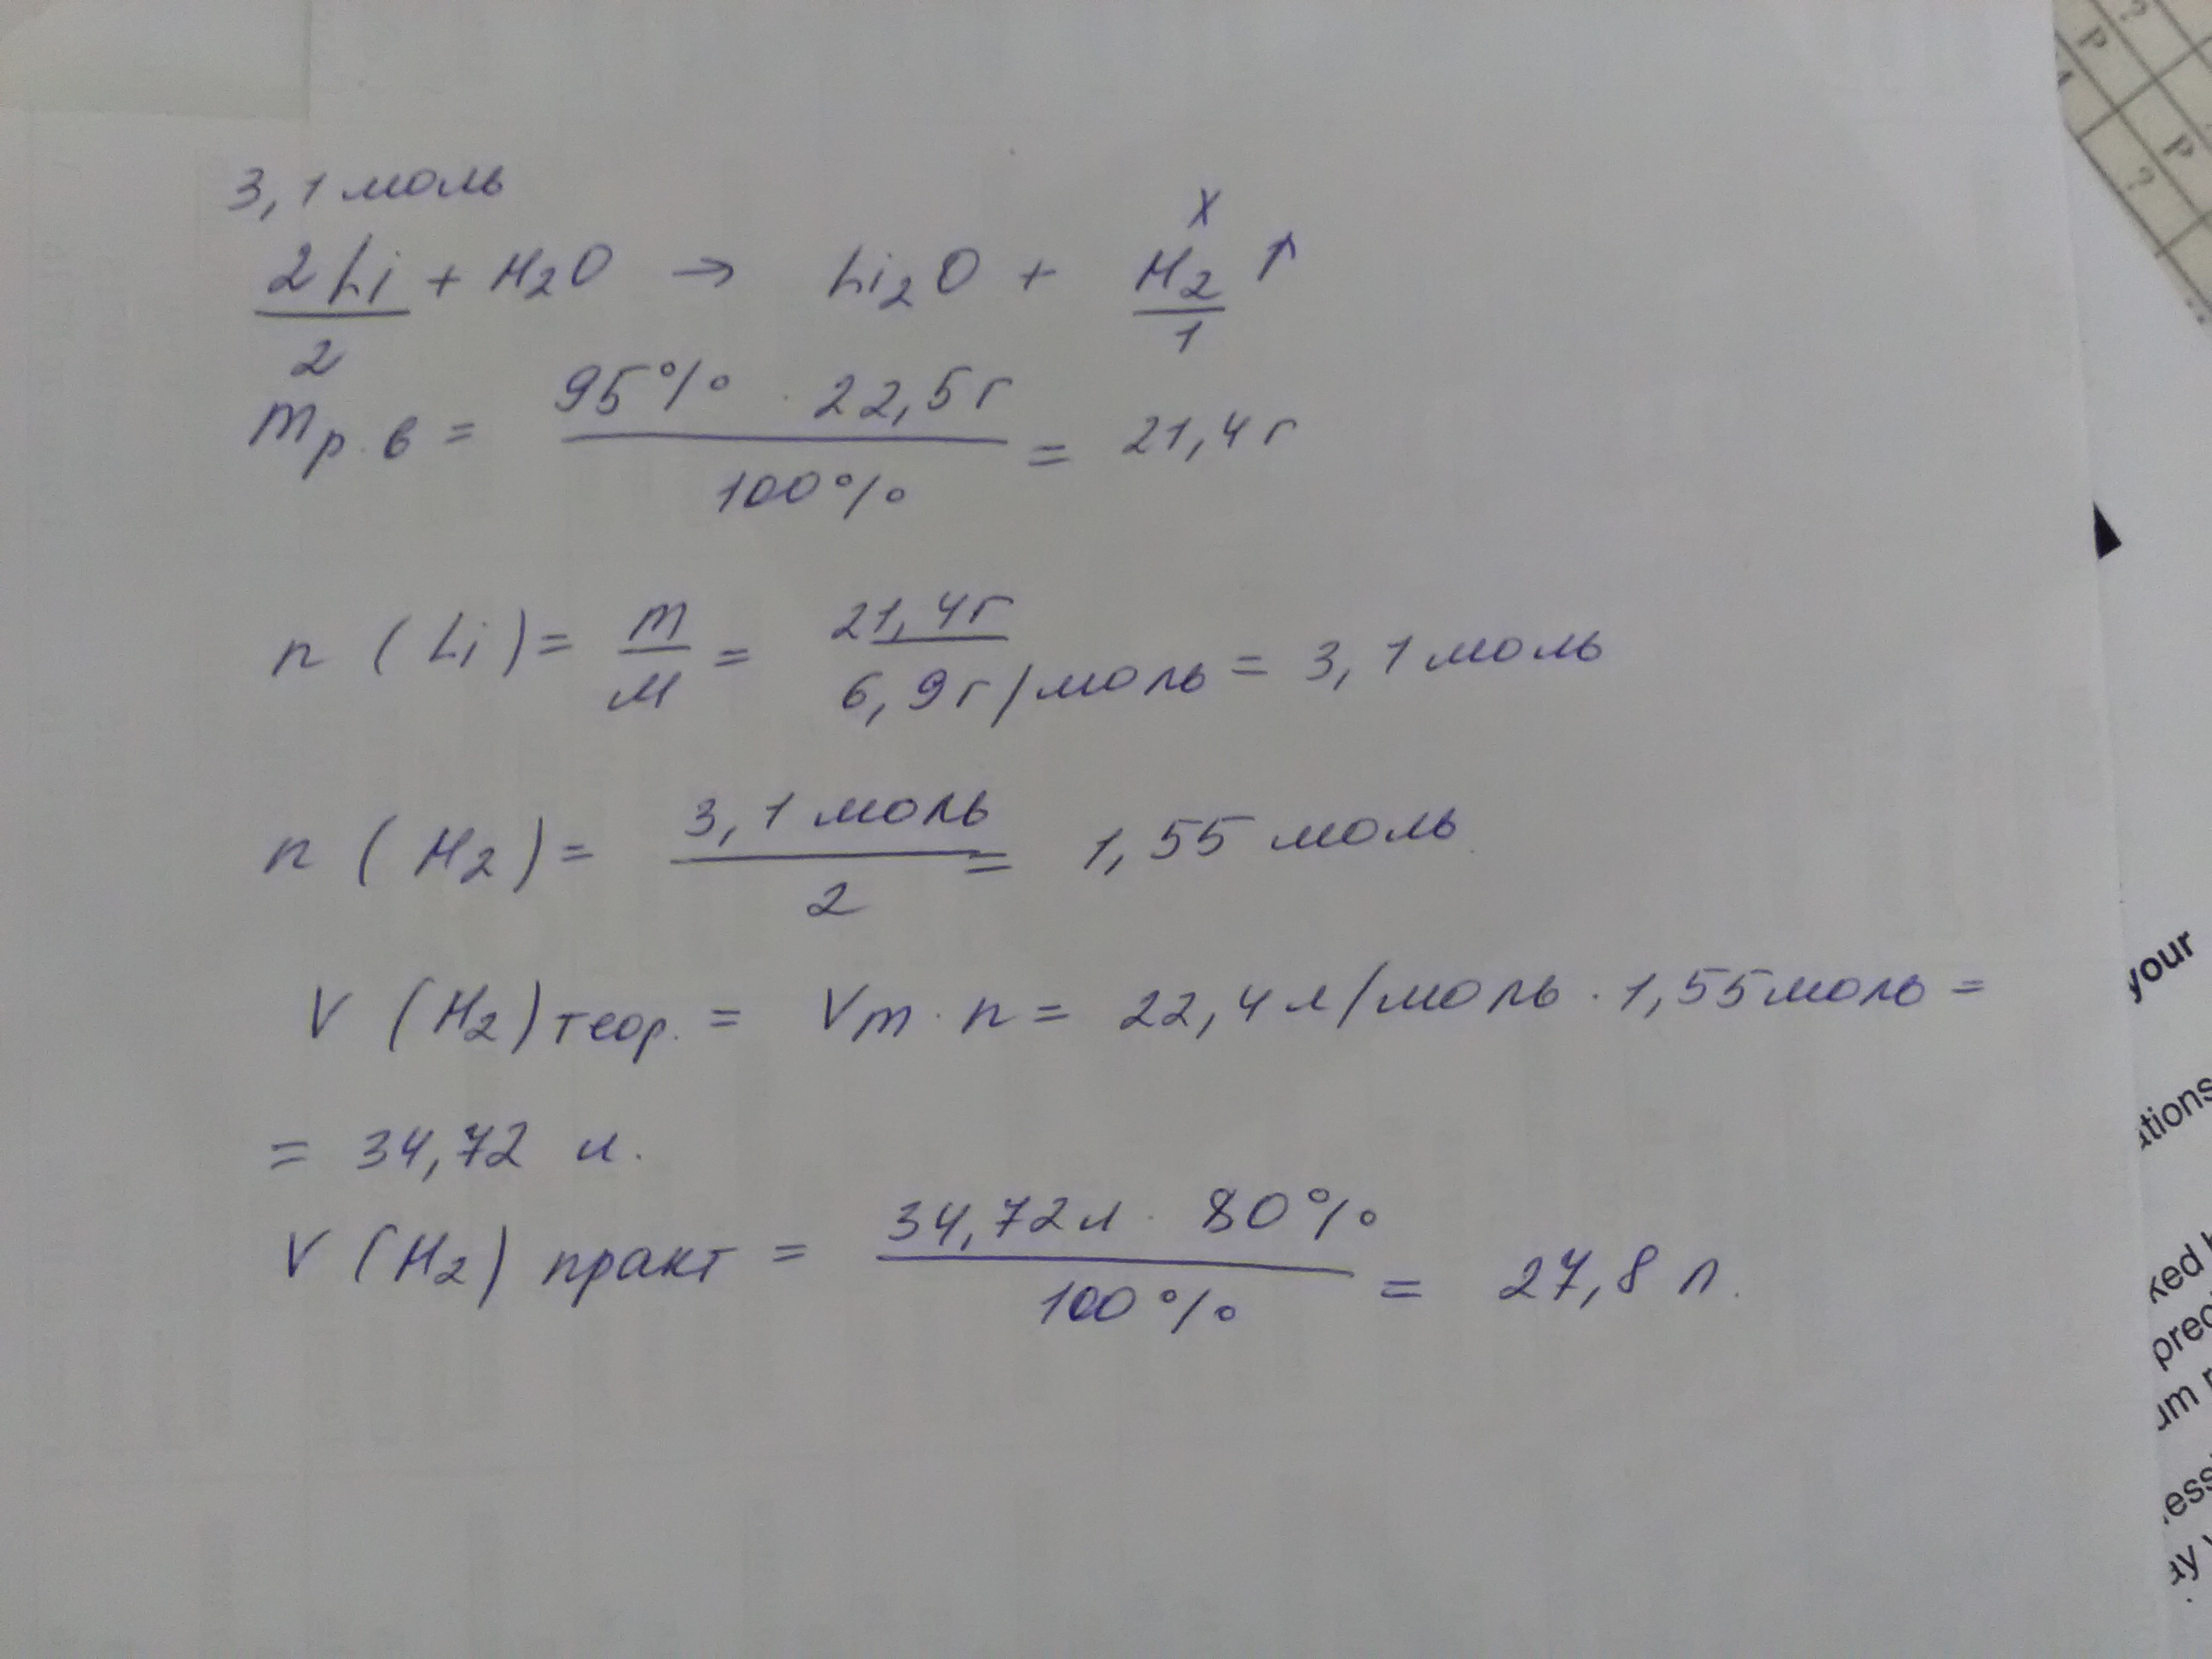 3,1 моль
x
2Li + H2O → Li2O + H2 ↑
2 1
mр.в = 95% · 22,5г / 100% = 21,4 г
n (Li) = m / M = 21,4г / 6,9г/моль = 3,1 моль
n (H2) = 3,1 моль / 2 = 1,55 моль
V (H2) теор. = Vm · n = 22,4 л/моль · 1,55 моль =
= 34,72 л.
V (H2) практ = 34,72л · 80% / 100% = 27,8 л.
?
P
P
?
your
ations